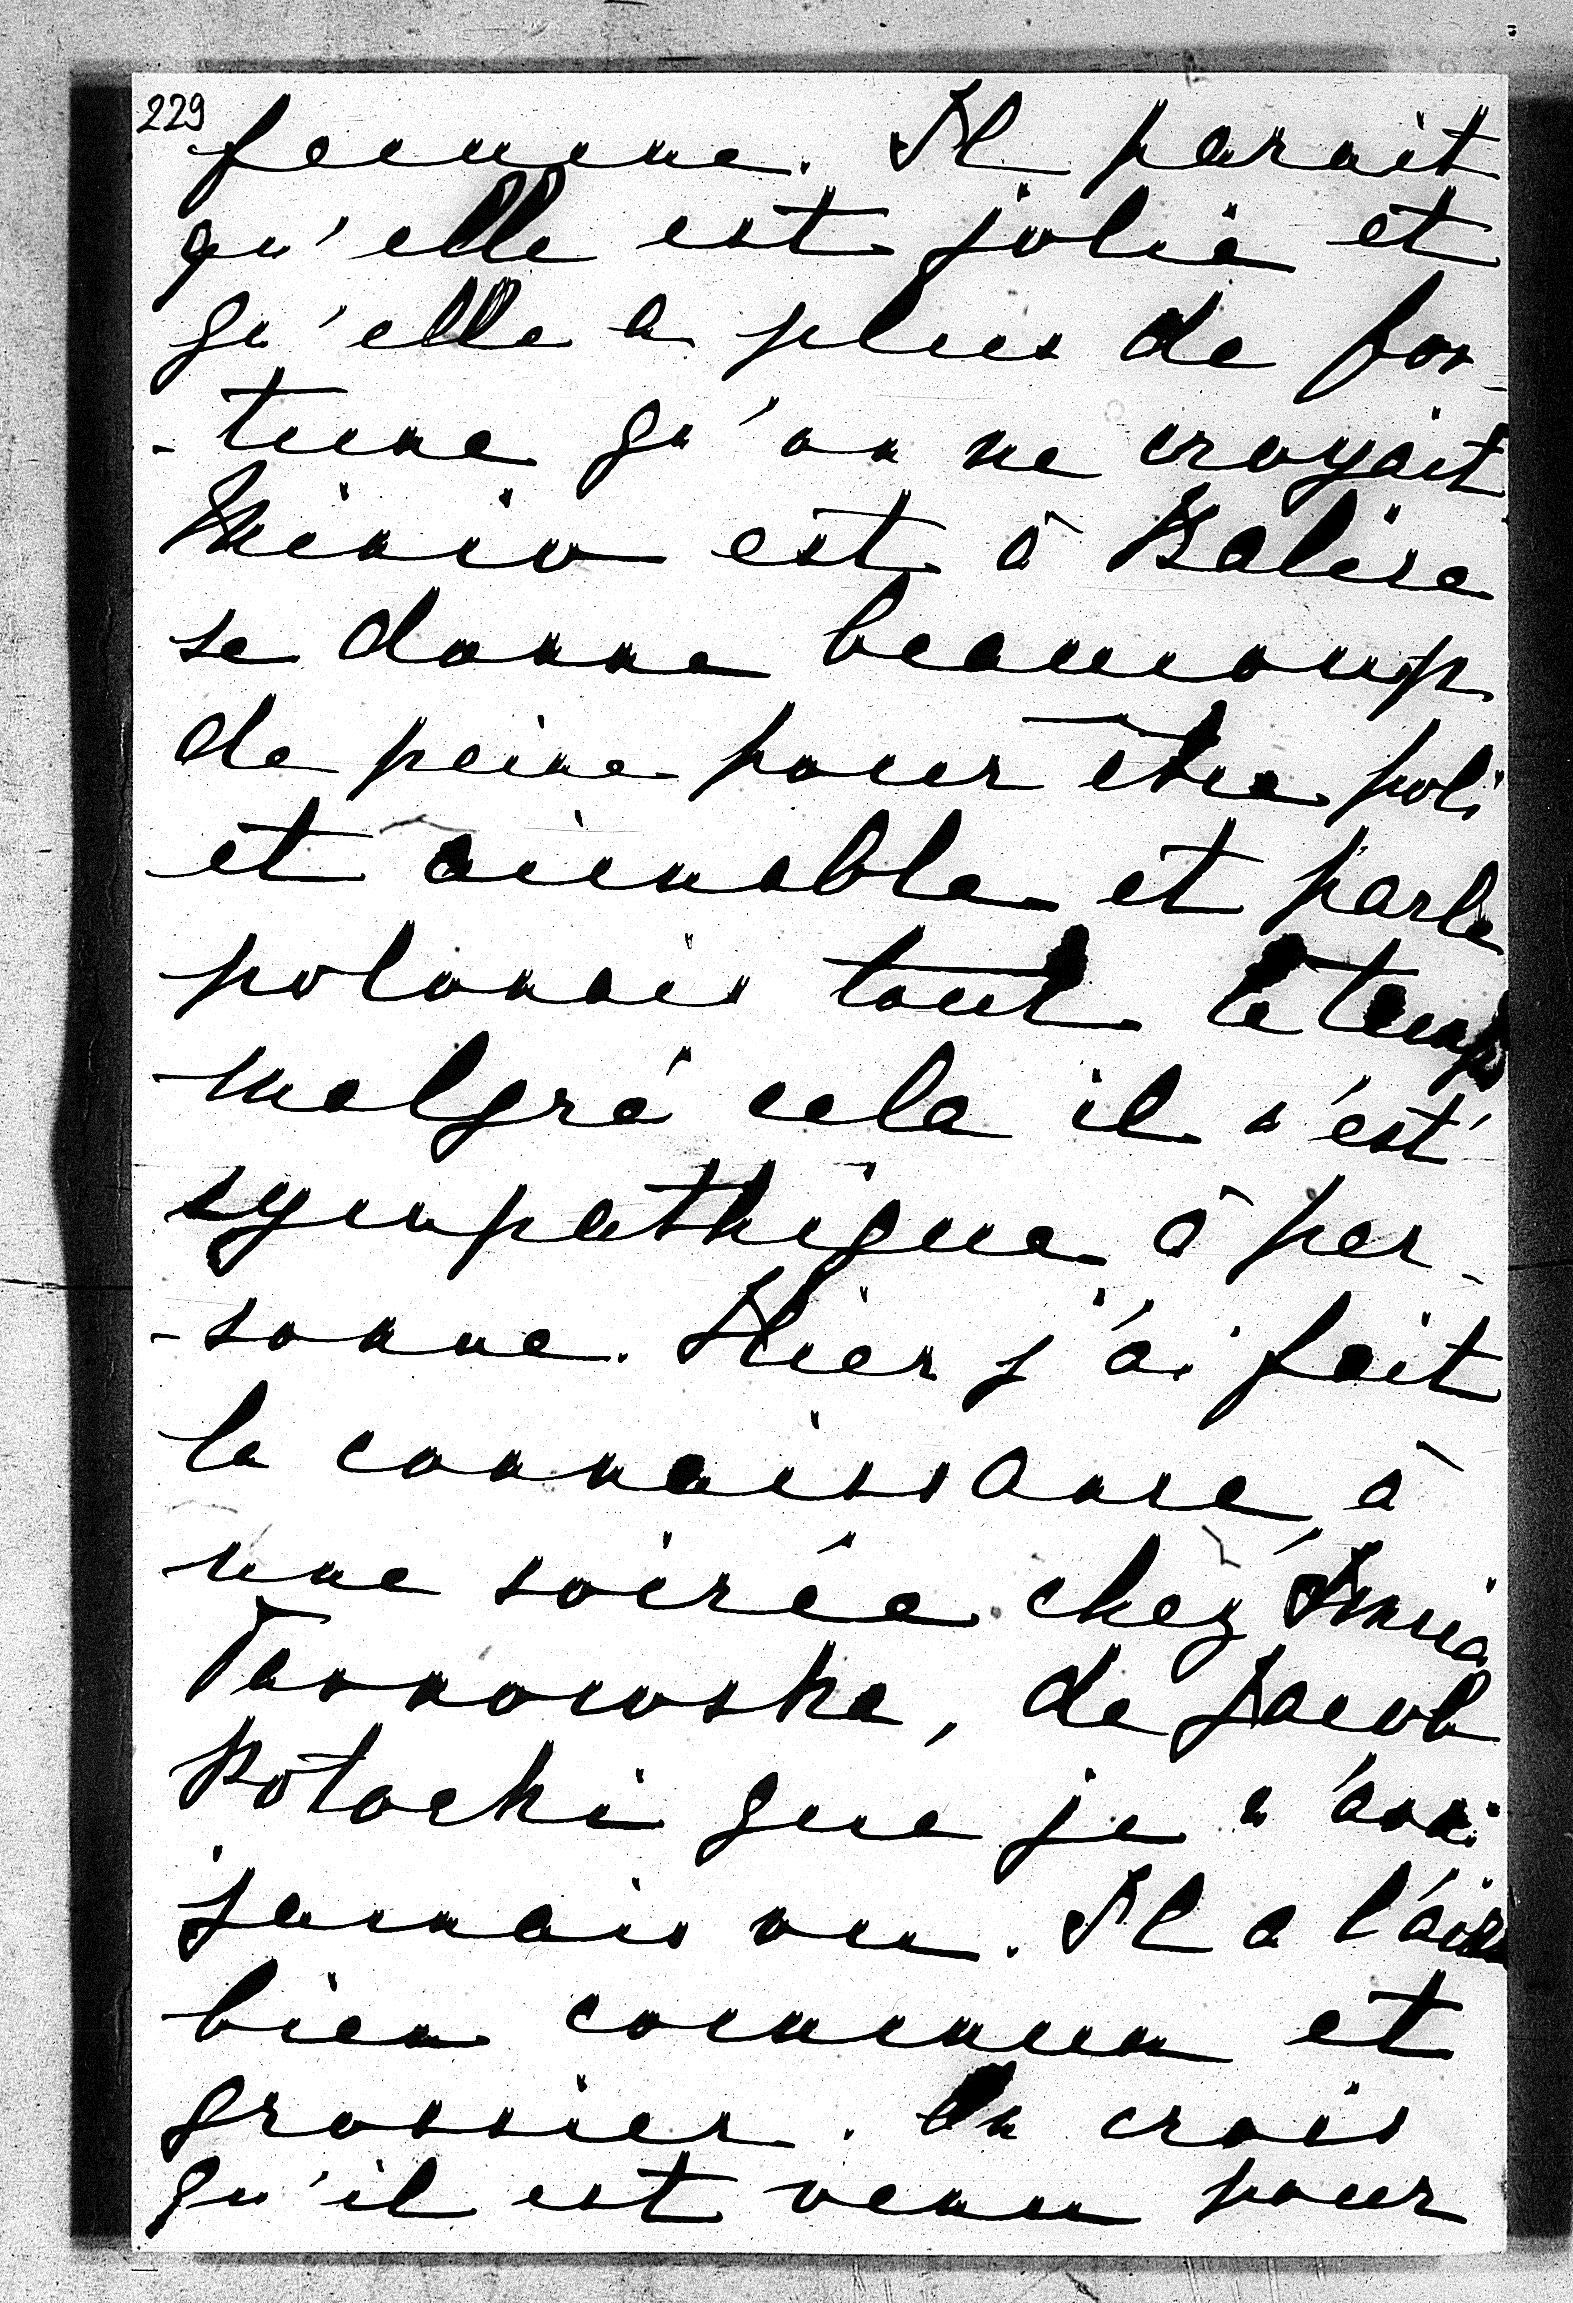 229
femme. Il parait
qu'elle est jolie et
qu'elle a plus de for-
-tune qu'on ne croyait
Ninio est à Balice
se donne beaucoup
de peine pour être poli
et aimable et parle
polonais tout le temps
malgré cela il n'est
sympathique à per-
-sonne. Hier j'ai fait
la connaissance, à
une soirée chez Imcia
Tarnowska, de Jacob
Potocki que je n'avai
jamais vu. Il a l'air
bien commun et
grossier. On crois
qu'il est venu pour